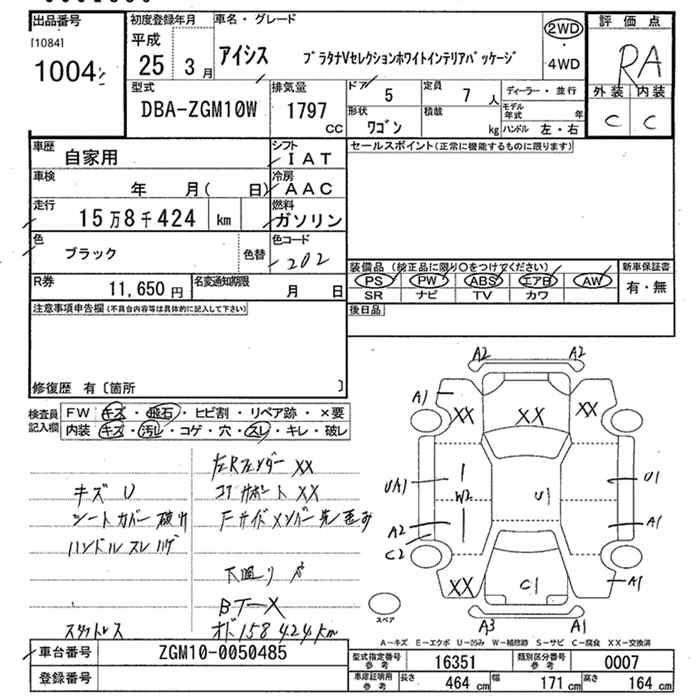 出品番号
[1084]
1004
初度登録年月
平成
25 3月
車名・グレード
アイシス プラタナVセレクションホワイトインテリアパッケージ
2WD
・
4WD
評価点
RA
外装 内装
C C
型式
DBA-ZGM10W
排気量
1797
CC
ドア
5
定員
7 人
ディーラー・並行
形状
ワゴン
積載
kg
モデル年式 年
ハンドル 左・右
車歴
自家用
シフト
IAT
セールスポイント(正常に機能するものに限ります)
車検
年 月( 日)
冷房
AAC
走行
15万8千424 km
燃料
ガソリン
色
ブラック
色替
色コード
202
R券
11,650円
名変通知期限
月 日
装備品(純正品に限り○をつけてください)
PS PW ABS エアB AW
SR ナビ TV カワ
新車保証書
有・無
注意事項申告欄(不具合内容等は具体的に記入して下さい)
後日品
修復歴 有〔箇所 〕
検査員
記入欄
FW キズ・飛石・ヒビ割・リペア跡・×要
内装 キズ・汚レ・コゲ・穴・スレ・キレ・破レ
左Rフェンダー XX
キズ U
コアサポート XX
シートカバー破れ
Fサイドメンバー先歪み
ハンドルスレ
下廻りサ
BT-X
スタットレス
オド158424km
A2 A2
A1
XX XX XX
UA1
W2
U1
U1
A2
C2
A1
XX
C1
A1
スペア
A3 A1
A-キズ E-エクボ U-凹み W-補修跡 S-サビ C-腐食 XX-交換済
車台番号
ZGM10-0050485
登録番号
型式指定番号
参考
16351
類別区分番号
参考
0007
車庫証明用
参考
長さ 464 cm
幅 171 cm
高さ 164 cm